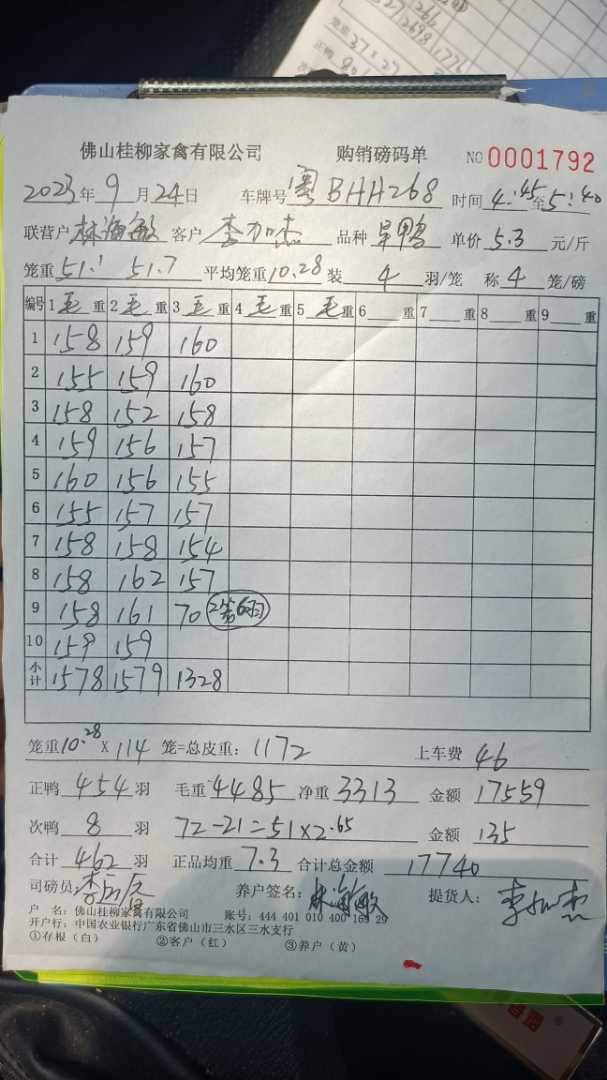 佛山桂柳家禽有限公司 购销磅码单 NO 0001792
2023年 9 月 24 日 车牌号 粤BHH268 时间 4:45 至 5:40
联营户 林海敏 客户 李加杰 品种 鸭 单价 5.3 元/斤
笼重 51.1 51.7 平均笼重 10.28 装 4 羽/笼 称 4 笼/磅
编号 1 毛 重 2 毛 重 3 毛 重 4 毛 重 5 毛 重 6 重 7 重 8 重 9 重
1 158 159 160
2 155 159 160
3 158 152 158
4 159 156 157
5 160 156 155
6 155 157 157
7 158 158 154
8 158 162 157
9 158 161 70 2笼6羽
10 159 159
小计 1578 1579 1328
笼重 10.28 X 114 笼=总皮重: 1172 上车费 46
正鸭 454 羽 毛重 4485 净重 3313 金额 17559
次鸭 8 羽 72-21=51×2.65 金额 135
合计 462 羽 正品均重 7.3 合计总金额 17740
司磅员 养户签名: 林海敏 提货人: 李加杰
户 名: 佛山桂柳家禽有限公司 账号: 444 401 010 400 169 29
开户行: 中国农业银行广东省佛山市三水区三水支行
①存根(白) ②客户(红) ③养户(黄)